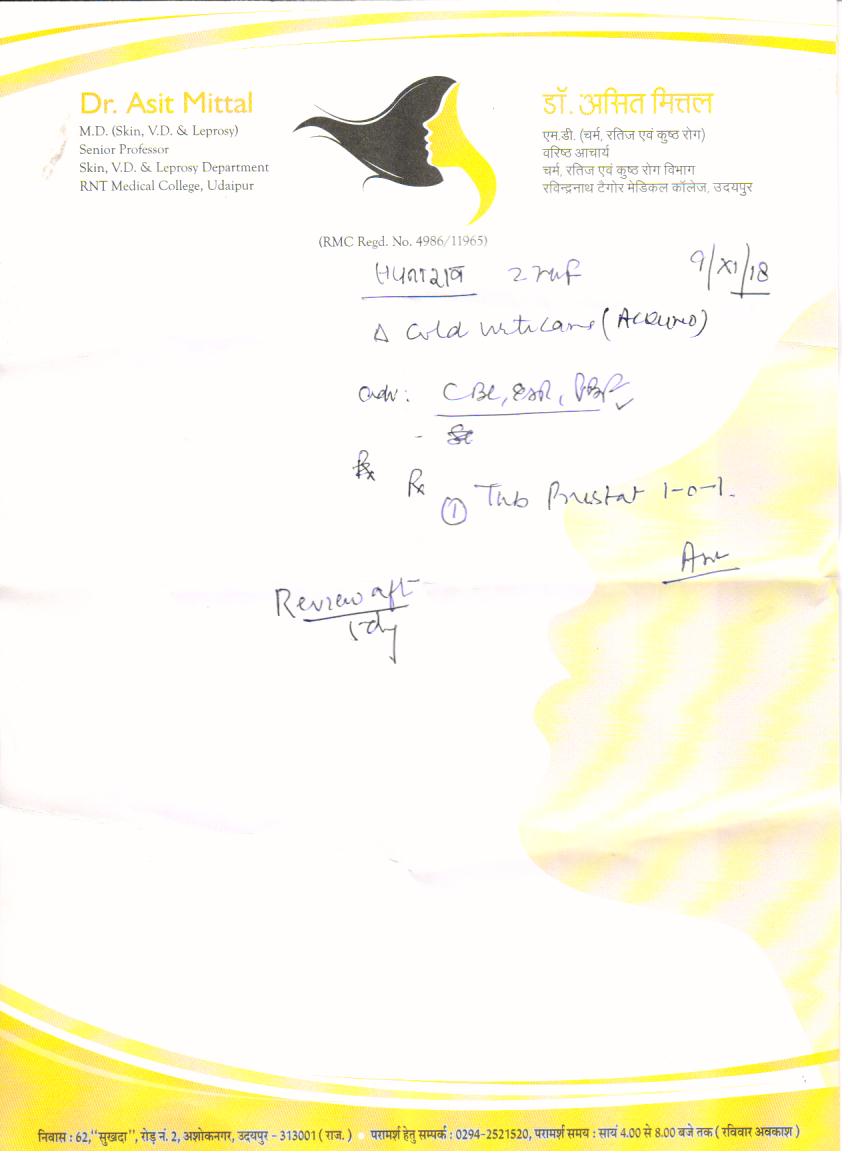 Dr. Asit Mittal
M.D. (Skin, V.D. & Leprosy)
Senior Professor
Skin, V.D. & Leprosy Department
RNT Medical College, Udaipur
डॉ. असित मित्तल
एम.डी. (चर्म, रतिज एवं कुष्ठ रोग)
वरिष्ठ आचार्य
चर्म, रतिज एवं कुष्ठ रोग विभाग
रविन्द्रनाथ टैगोर मेडिकल कॉलेज, उदयपुर
(RMC Regd. No. 4986/11965)
9/XI/18
Δ Cold Urticaria
adv: CBC, ESR, PBF
Rx
① Tab 1-0-1.
Review aft
निवास : 62,"सुखदा", रोड़ नं. 2, अशोकनगर, उदयपुर - 313001 ( राज. ) • परामर्श हेतु सम्पर्क : 0294-2521520, परामर्श समय : सायं 4.00 से 8.00 बजे तक ( रविवार अवकाश )